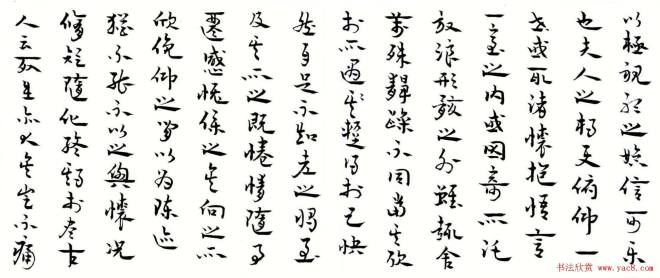 以極視聽之娛信可樂
也夫人之相與俯仰一
世或取諸懷抱悟言
一室之内或因寄所託
放浪形骸之外雖趣舍
萬殊靜躁不同當其欣
於所遇其暫得於己快
然自足不知老之將至
及其所之既惓情隨事
遷感慨係之矣向之所
欣俛仰之間以為陳迹
猶不能不以之興懷況
脩短隨化終期於盡古
人云死生亦大矣豈不痛
书法欣赏
www.yac8.com